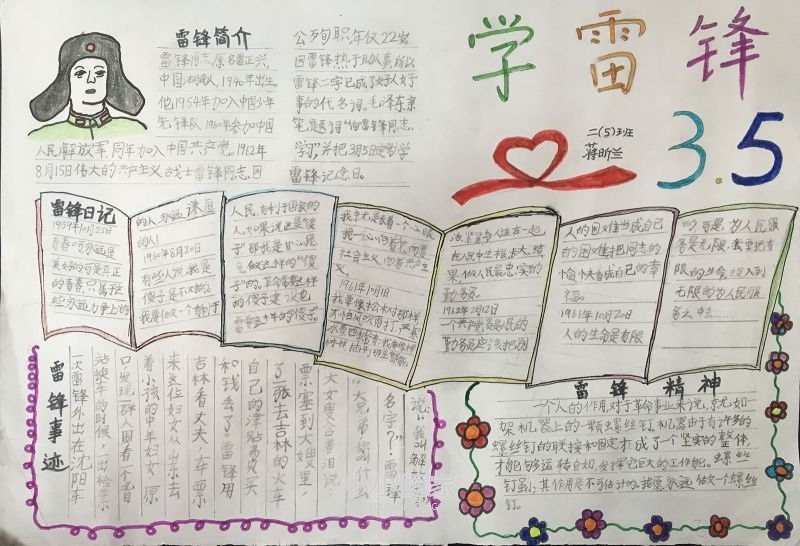 学雷锋
3.5
二(5)班
蒋昕兰
雷锋简介
雷锋同志,原名雷正兴,
中国湖南人,1940年出生。
他1954年加入中国少年
先锋队,1960年参加中国
人民解放军,同年加入中国共产党。1962年
8月15日伟大的共产主义战士雷锋同志,因
公殉职,年仅22岁
因雷锋热于助人事所以
雷锋二字已成了好人好
事的代名词。毛泽东亲
笔题词“向雷锋同志
学习”,并把3月5日定为学
雷锋记念日。
雷锋日记
1959年10月25日
青春啊,永远是
美好的,可是真正
的青春,只属于这
些永远力争上游
的人,永远谦虚
的人!
1960年8月20日
有些人说我是
傻子,是不对的。
我要做一个有利于
人民,有利于国家的
人。如果说这是傻
子,那我是甘心愿
意做这样的“傻
子”的,革命需要这样
的傻子,建设也
需要这样的傻子。
我一心向着
社会主义,向着共产主
义。
1961年10月1
在人民中生根
果,做人民最忠实的
勤务员。
1962年2月12
人的困难当成自己
的困难,把同志的
愉快看成自己的幸
福。
1961年10月20
人的生命是有限
的,可是,为人民服
务是无限,我要把有
限的生命,投入到
无限的为人民服
务之中去……
雷锋事迹
一次雷锋外出在沈阳车
站换车的时候,一出检票
口,发现一群人围着一个背
着小孩的中年妇女,原
来这位妇女从山东去
吉林看丈夫,车票
和钱丢了。雷锋用
自己的津贴费买
了一张去吉林的火车
票塞到大嫂里,
大嫂含着泪说
“大兄弟你叫什么
名字?”雷锋
说“我叫解放
雷锋精神
一个人的作用,对于革命事业来说,就如一
架机器上的一颗螺丝钉,机器由于有许多的
螺丝钉的联接和固定,才成了个坚实的整体,
才能够运转自如,发挥它巨大的工作能。螺丝
钉虽小,其作用是不可估计的。我愿永远做一个螺丝
钉。